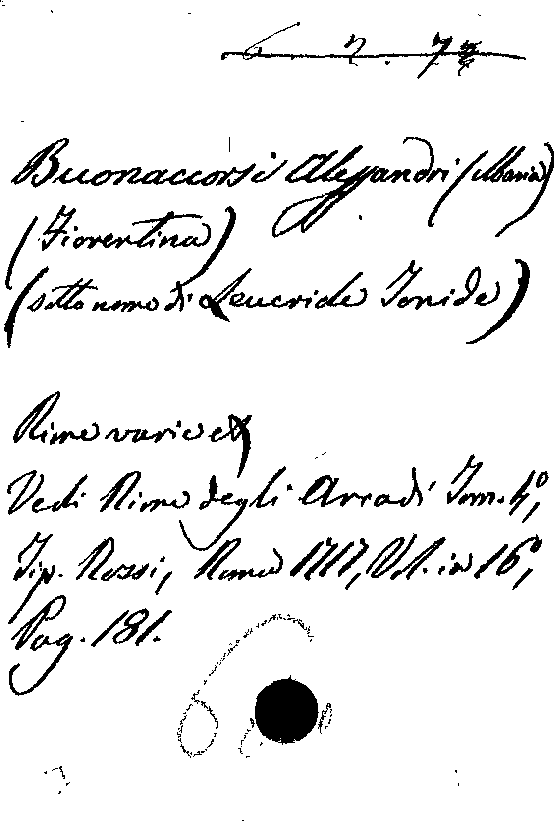 6. 2. 7
Buonaccorsi Alessandri (Maria)
(Fiorentina)
(sotto nome di Leucride Jonide)
Rime varie
Vedi Rime degli Arcadi Tom. 4º,
Tip. Rossi, Roma 1717, Vol. in 16º,
Pag. 181.
6